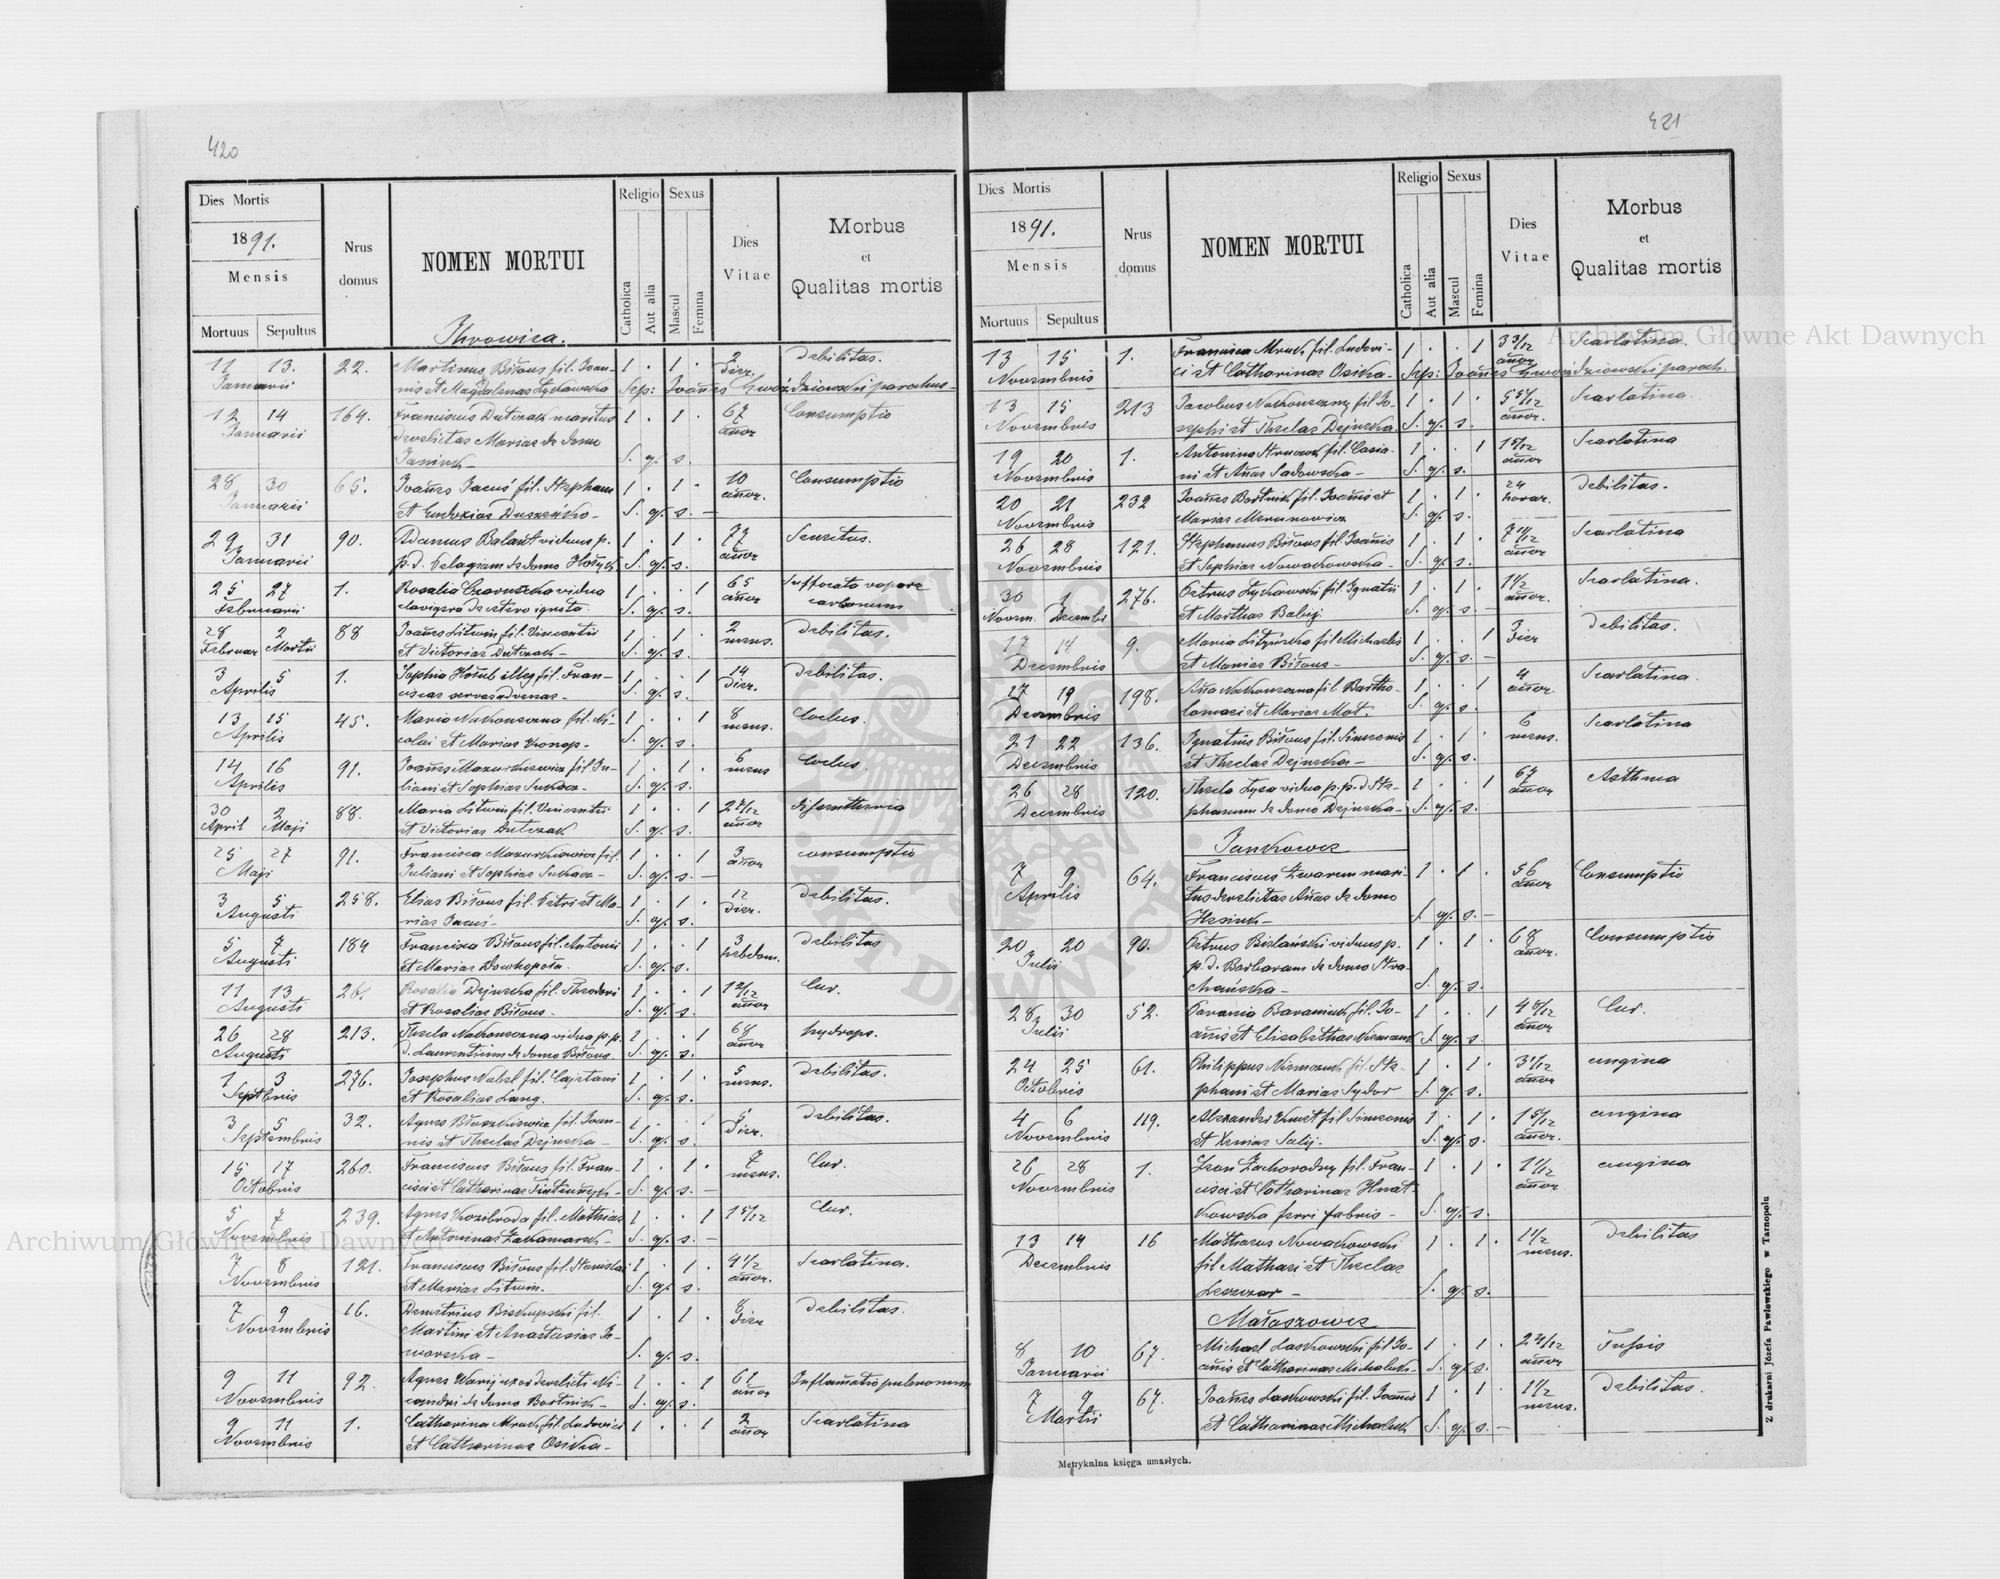 420
Dies Mortis
1891.
Mensis
Mortuus Sepultus
Nrus domus
NOMEN MORTUI
Religio
Catholica
Aut alia
Sexus
Mascul
Femina
Dies Vitae
Morbus
et
Qualitas mortis
Ihrowica.
11 13. 22. Martinus Biłous fil. Joan- 1 . 1 . 2 Debilitas.
Januarii nis et Magdalenae Łyskawska Sep: Joañes Gwoździowski parochus dier.
12 14 164. Franciscus Dutczak maritus 1 . 1 . 67 Consumptio
Januarii derelictae Mariae de domo añor
Janiuk - S. q. s.
28 30 65. Joañes Jacuś fil. Stephani 1 . 1 . 10 Consumptio
Januarii et Eudoxiae Duszeńko - S. q. s. - añor.
29 31 90. Adamus Balant viduus p. 1 . 1 . 77 Senectus.
Januarii p. d. Pelagiam de domo S. q. s. añor
25 27 1. Rosalia Czaruszka vidua 1 . . 1 65 Suffocata vapore
Februarii S. q. s. añor carbonum
28 2 88 Joañes Litwin fil. Vincentii 1 . 1 . 2 Debilitas.
Februar Martii et Victoriae Dutczak - S. q. s. mens.
3 5 1. Sophia Hołub illeg fil. Fran- 1 . . 1 14 Debilitas.
Aprilis ciscae servae advenae - S. q. s. dier.
13 15 45. Maria Nakoneczna fil. Ni- 1 . . 1 8
Aprilis colai et Mariae Konop - S. q. s. mens.
14 16 91. Joañes Mazurkiewicz fil. Ju- 1 . 1 . 6
Aprilis liani et Sophiae S. q. s. mens
30 2 88. Maria Litwin fil. Vincentii 1 . . 1 2 7/12
April Maji et Victoriae Dutczak S. q. s. añor
25 27 91. Francisca Mazurkiewicz fil. 1 . . 1 3 consumptio
Maji Juliani et Sophiae S. q. s. - añor
3 5 258. Elias Biłous fil. Petri et Ma- 1 . 1 . 12 Debilitas.
Augusti riae Jacuś - S. q. s. dier.
5 7 184 Francisca Biłous fil. Antonii 1 . . 1 3 Debilitas
Augusti et Mariae Dowhopoła. S. q. s. hebdom.
11 13 Rosalia Dejneka fil. Theodori 1 . . 1 1 2/12
Augusti et Rosaliae Biłous - S. q. s. añor
26 28 213. Thecla Nakoneczna vidua p. p. 1 . . 1 68 hydrops.
Augusti d. Laurentium de domo Biłous S. q. s. añor
1 3 276. Josephus Nabel fil. Cajetani 1 . 1 . 5 Debilitas.
Septbris et Rosaliae Lang. S. q. s. mens.
3 5 32. Agnes fil. Joan- 1 . . 1 5 Debilitas.
Septembris nis et Theclae Dejneka - S. q. s. dier.
15 17 260. Franciscus Biłous fil. Fran- 1 . 1 . 7
Octobris cisci et Catharinae S. q. s. - mens.
5 7 239. Agnes Kozibroda fil. Mathiae 1 . . 1 1 5/12
Novembris et Antoninae S. q. s. -
7 8 121. Franciscus Biłous fil. Stanislai 1 . 1 . 4 1/2 Scarlatina.
Novembris et Mariae Litwin. S. q. s. añor.
7 9 16. Demetrius Biskupski fil. 1 . 1 . 8 Debilitas.
Novembris Martini et Anastasiae dier
S. q. s.
9 11 92. Agnes uxor derelicti Ni- 1 . . 1 61 Inflamatio pulmonum
Novembris candri de domo Bortnik - S. q. s. añor
9 11 1. Catharina Mruk fil. Ludovici 1 . . 1 2 Scarlatina
Novembris et Catharinae Osicka - añor
421
Dies Mortis
1891.
Mensis
Mortuus Sepultus
Nrus domus
NOMEN MORTUI
Religio
Catholica
Aut alia
Sexus
Mascul
Femina
Dies Vitae
Morbus
et
Qualitas mortis
13 15 1. Francisca Mruk fil. Ludovi- 1 . . 1 3 3/12 Scarlatina.
Novembris ci et Catharinae Osicka - Sep: Joañes Gwoździowski paroch. añor
13 15 213 Jacobus Nakoneczny fil Jo- 1 . 1 . 5 5/12 Scarlatina.
Novembris sephi et Theclae Dejneka S. q. s. añor.
19 20 1. Antonina fil. Casia- 1 . . 1 1 5/12 Scarlatina
Novembris ni et Añae Sadowska - S. q. s. añor
20 21 232 Joañes Bortnik fil. Joañis et 1 . 1 . 24 Debilitas.
Novembris Mariae Merunowicz S. q. s. horar.
26 28 121. Stephanus Biłous fil. Joañis 1 . 1 . Scarlatina
Novembris et Sophiae Nowakowska - S. q. s. añor
30 1 276. Petrus Łyskawski fil. Ignatii 1 . 1 . 1 1/2 Scarlatina.
Novem. Decembr et Marthae Babij S. q. s. - añor.
17 14 9. Maria Lityńska fil Michaelis 1 . . 1 3 Debilitas.
Decembris et Mariae Biłous - S. q. s. - dier
17 19 198. Aña Nakoneczna fil Bartho- 1 . . 1 4 Scarlatina.
Decembris lomaei et Mariae Mot. S. q. s. añor.
21 22 136. Ignatius Biłous fil. Simeonis 1 . 1 . 6 Scarlatina
Decembris et Theclae Dejneka - S. q. s. mens.
26 28 120. Thecla Łysa vidua p. p. d Ste- 1 . . 1 67 Asthma
Decembris phanum de domo Dejneka - S. q. s. añor
Jankowce
7 9 64. Franciscus Zwarun mari- 1 . 1 . 56 Consumptio
Aprilis tus derelictae Añae de domo añor
S. q. s. -
20 20 90. Petrus Bielański viduus p. 1 . 1 . 68 Consumptio
Julii p. d. Barbaram de domo Stra- añor.
chańska - S. q. s.
28 30 52. Parania Baraniuk fil. Jo- 1 . . 1 4 8/12
Julii añis et Elisabethae S. q. s. añor
24 25 61. Philippus fil. Ste- 1 . 1 . 3 1/12 angina
Octobris phani et Mariae Sydor S. q. s. añor
4 6 119. Alexander Kmet fil Simeonis 1 . 1 . 1 5/12 angina
Novembris et Xeniae Salij - S. q. s. añor.
26 28 1. Leon Zahorodny fil. Fran- 1 . 1 . 1 1/12 angina
Novembris cisci et Catharinae Hnat- añor
kowska ferri fabris - S. q. s.
13 14 16 Mathaeus Nowakowski 1 . 1 . 1 1/2 Debilitas
Decembris fil Mathaei et Theclae mens.
Leszczar - S. q. s.
Małaszowce
8 10 67. Michael Laskowski fil Jo- 1 . 1 . 2 4/12 Tussis
Januarii añis et Catharinae Michaluk - S. q. s. añor
7 9 67. Joañes Laskowski fil. Joañis 1 . 1 . 1 1/2 Debilitas.
Martii et Catharinae Michaluk S. q. s. - mens.
Metrykalna księga umarłych.
Z drukarni Józefa Pawłowskiego w Tarnopolu
Archiwum Główne Akt Dawnych
Archiwum Główne Akt Dawnych